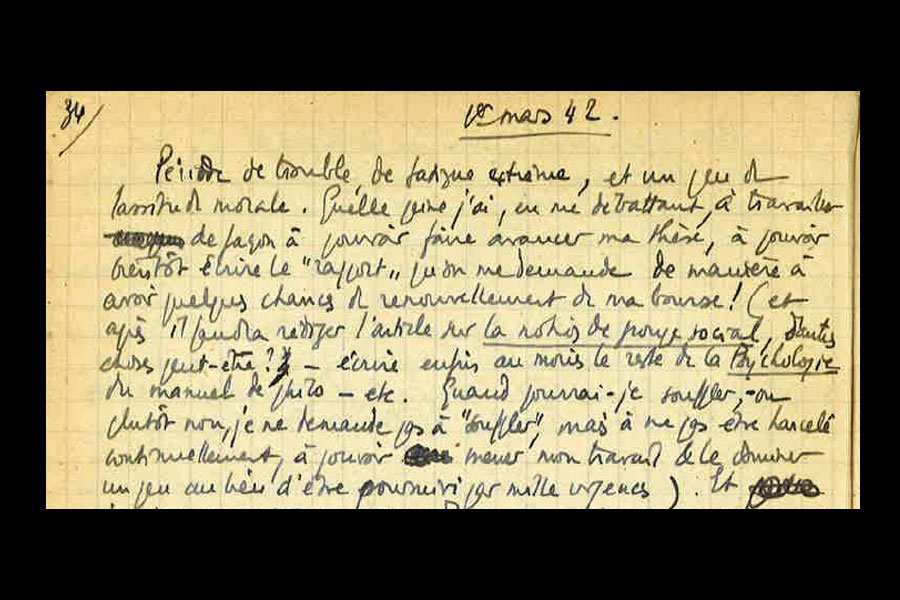 34/
1er mars 42.
Période de trouble, de fatigue extrême, et un peu de
lassitude morale. Quelle peine j'ai, en me débattant, à travailler
de façon à pouvoir faire avancer ma thèse, à pouvoir
bientôt écrire le "rapport" qu'on me demande de manière à
avoir quelques chances de renouvellement de ma bourse! (et
après il faudra rédiger l'article sur la notion de groupe social, d'autres
choses peut-être?) – écrire enfin au moins le reste de la Psychologie
du manuel de philo – etc. Quand pourrai-je souffler, – ou
plutôt non, je ne demande pas à "souffler", mais à ne pas être harcelé
continuellement, à pouvoir mener mon travail de le dominer
un peu au lieu d'être poursuivi par mille urgences). Et